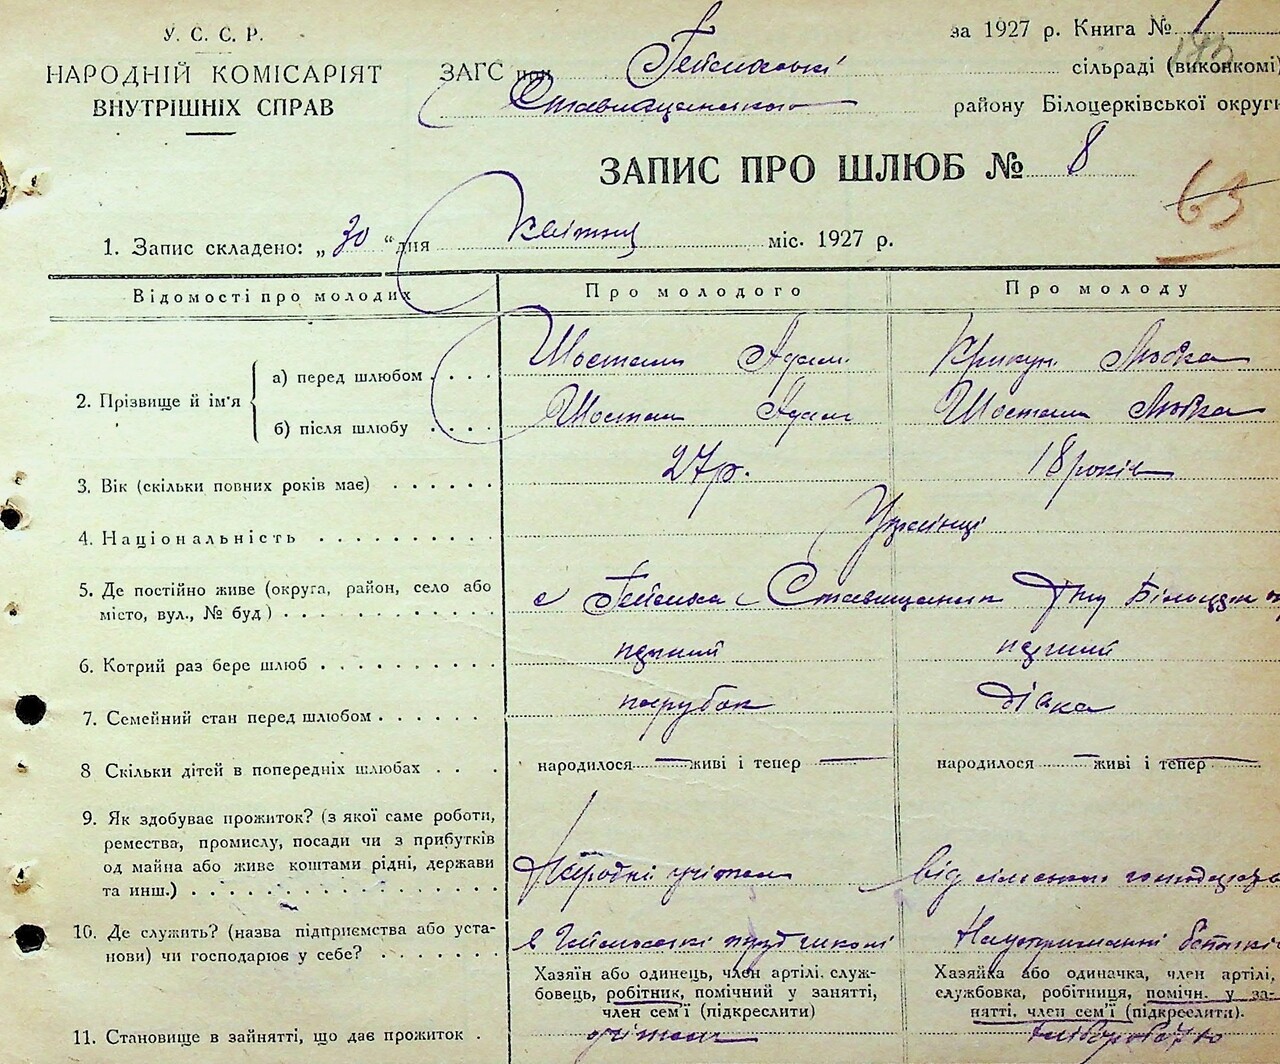 У. С. С. Р.
НАРОДНІЙ КОМІСАРІЯТ
ВНУТРІШНІХ СПРАВ
ЗАГС при Гейсиській сільраді (виконкомі)
Ставищанського району Білоцерківської округи
за 1927 р. Книга № 1
ЗАПИС ПРО ШЛЮБ № 8
63
1. Запис складено: „30 “ дня Квітня міс. 1927 р.
Відомості про молодих Про молодого Про молоду
2. Прізвище й ім'я
а) перед шлюбом . . . . Шостак Адам Крикун Любка
б) після шлюбу . . . . Шостак Адам Шостак Любка
3. Вік (скільки повних років має) . . . . . . 27р. 18 років
4. Національність . . . . . . . . . . Українці
5. Де постійно живе (округа, район, село або
місто, вул., № буд ) . . . . . . . . . . . с Гейсиха Ставищанськ Білоцерк
6. Котрий раз бере шлюб . . . . . . . . . . перший перший
7. Семейний стан перед шлюбом . . . . . . парубок дівка
8 Скільки дітей в попередніх шлюбах . . . народилося — живі і тепер — народилося — живі і тепер —
9. Як здобуває прожиток? (з якої саме роботи,
ремества, промислу, посади чи з прибутків
од майна або живе коштами рідні, держави
та инш.) . . . . . . . . . . . . . . . Народні учітель від сільського господарства
10. Де служить? (назва підприємства або уста-
нови) чи господарює у себе? . . . . . . . в школі На утриманні батьків
Хазяїн або одинець, член артілі. служ-
бовець, робітник, помічний у занятті,
член сем'ї (підкреслити)
Хазяйка або одиначка, член артілі,
службовка, робітниця, помічн. у за-
нятті. член сем'ї (підкреслити).
11. Становище в зайнятті, що дає прожиток . учітель хліборобство